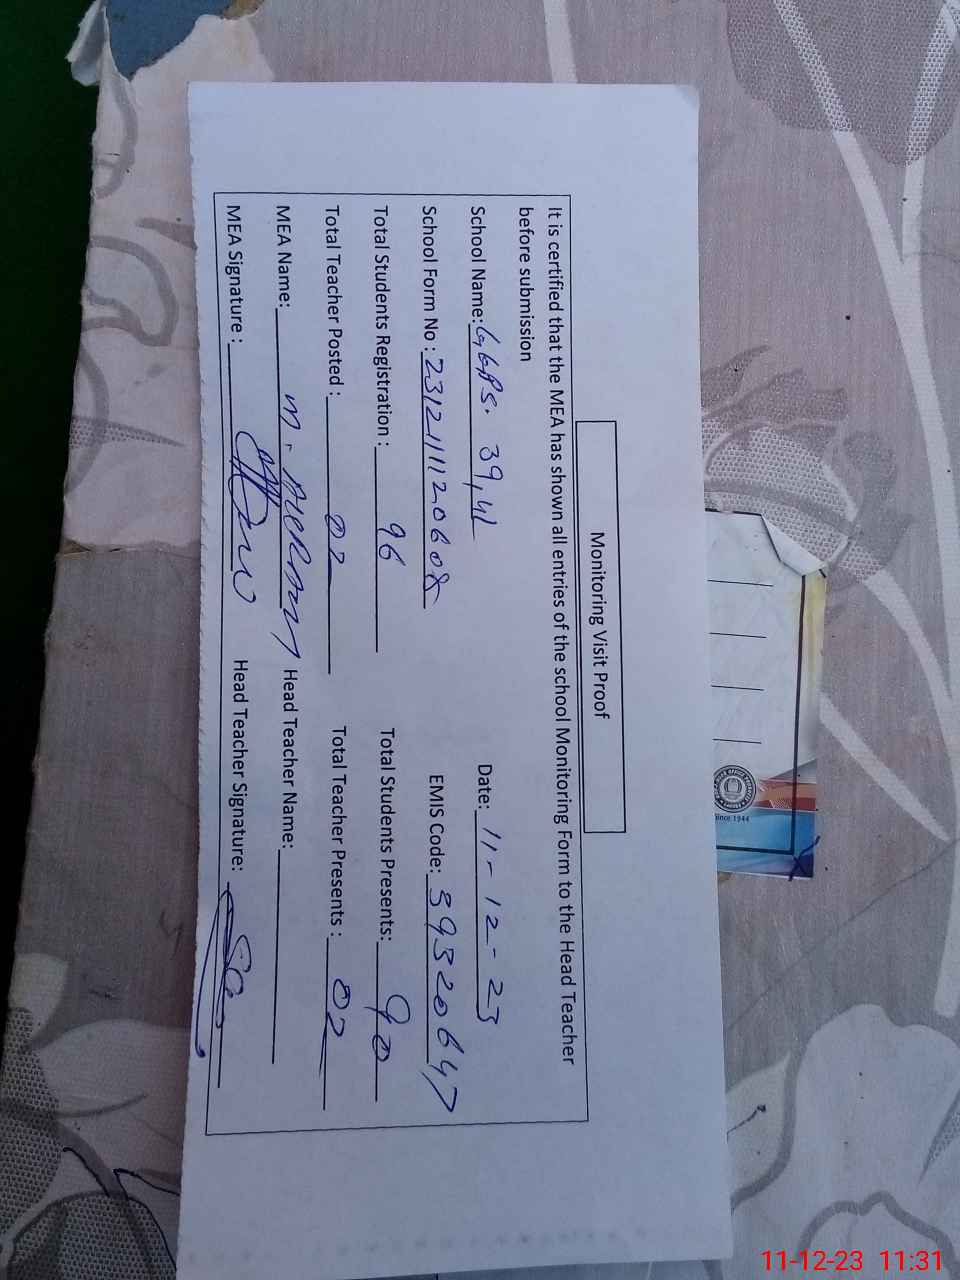 Monitoring Visit Proof
It is certified that the MEA has shown all entries of the school Monitoring Form to the Head Teacher
before submission
School Name: GGPS. 39,4L Date: 11-12-23
School Form No : 2312111120608 EMIS Code: 39320647
Total Students Registration : 96 Total Students Presents: 90
Total Teacher Posted : 02 Total Teacher Presents : 02
MEA Name: M. AKRAM Head Teacher Name:
MEA Signature : Head Teacher Signature:
Since 1944
11-12-23 11:31